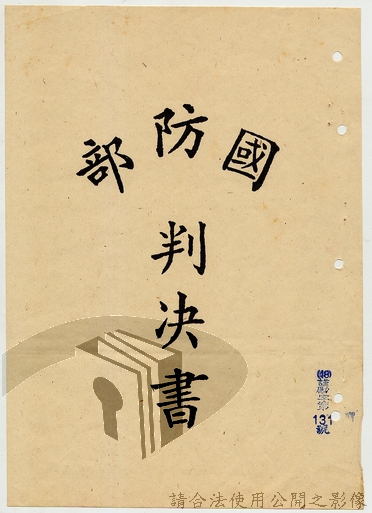 國防部
判決書
(48)
131
號
請合法使用公開之影像